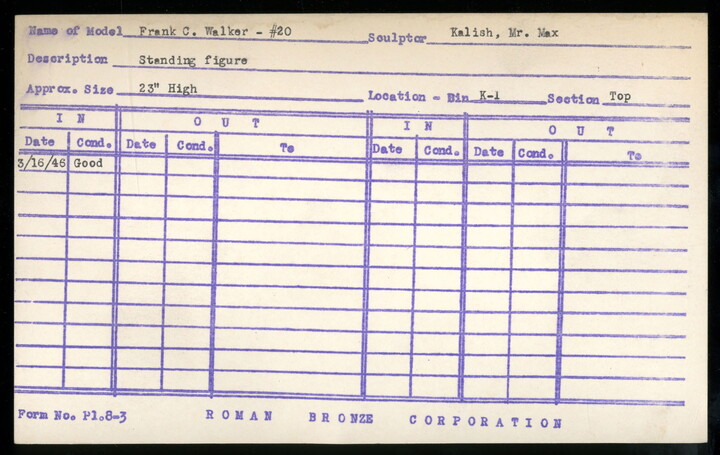 Name of Model Frank C. Walker - #20 Sculptor Kalish, Mr. Max
Description Standing figure
Approx. Size 23" High Location - Bin K-1 Section Top
I N O U T I N O U T
Date Cond. Date Cond. To Date Cond. Date Cond. To
3/16/46 Good
Form No. P1.8-3 ROMAN BRONZE CORPORATION